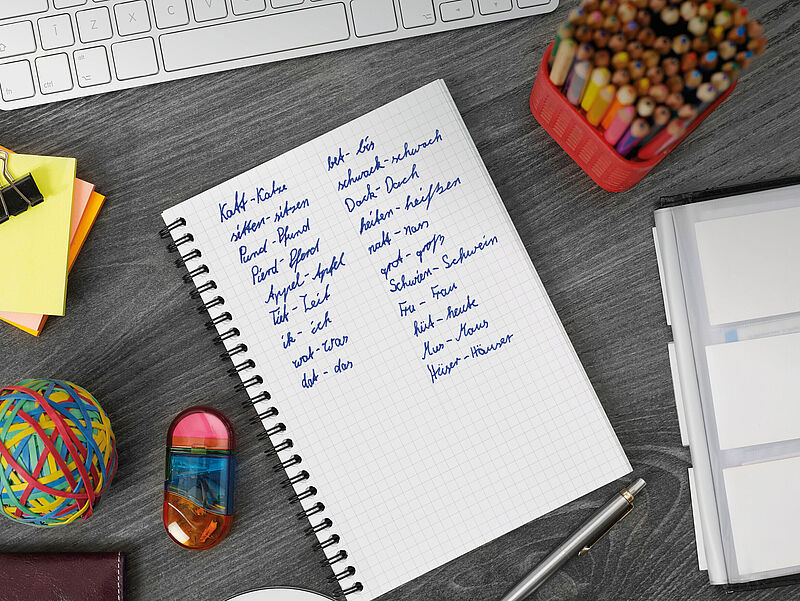 Katt-Katze
sitten-sitzen
Pund-Pfund
Pierd-Pferd
Appel-Apfel
Tiet-Zeit
ik-ich
wat-was
dat-das
bet-bis
schwack-schwach
Dack-Dach
heiten-heißen
natt-nass
grot-groß
Schwien-Schwein
Fru-Frau
hüt-heute
Mus-Maus
Hüser-Häuser